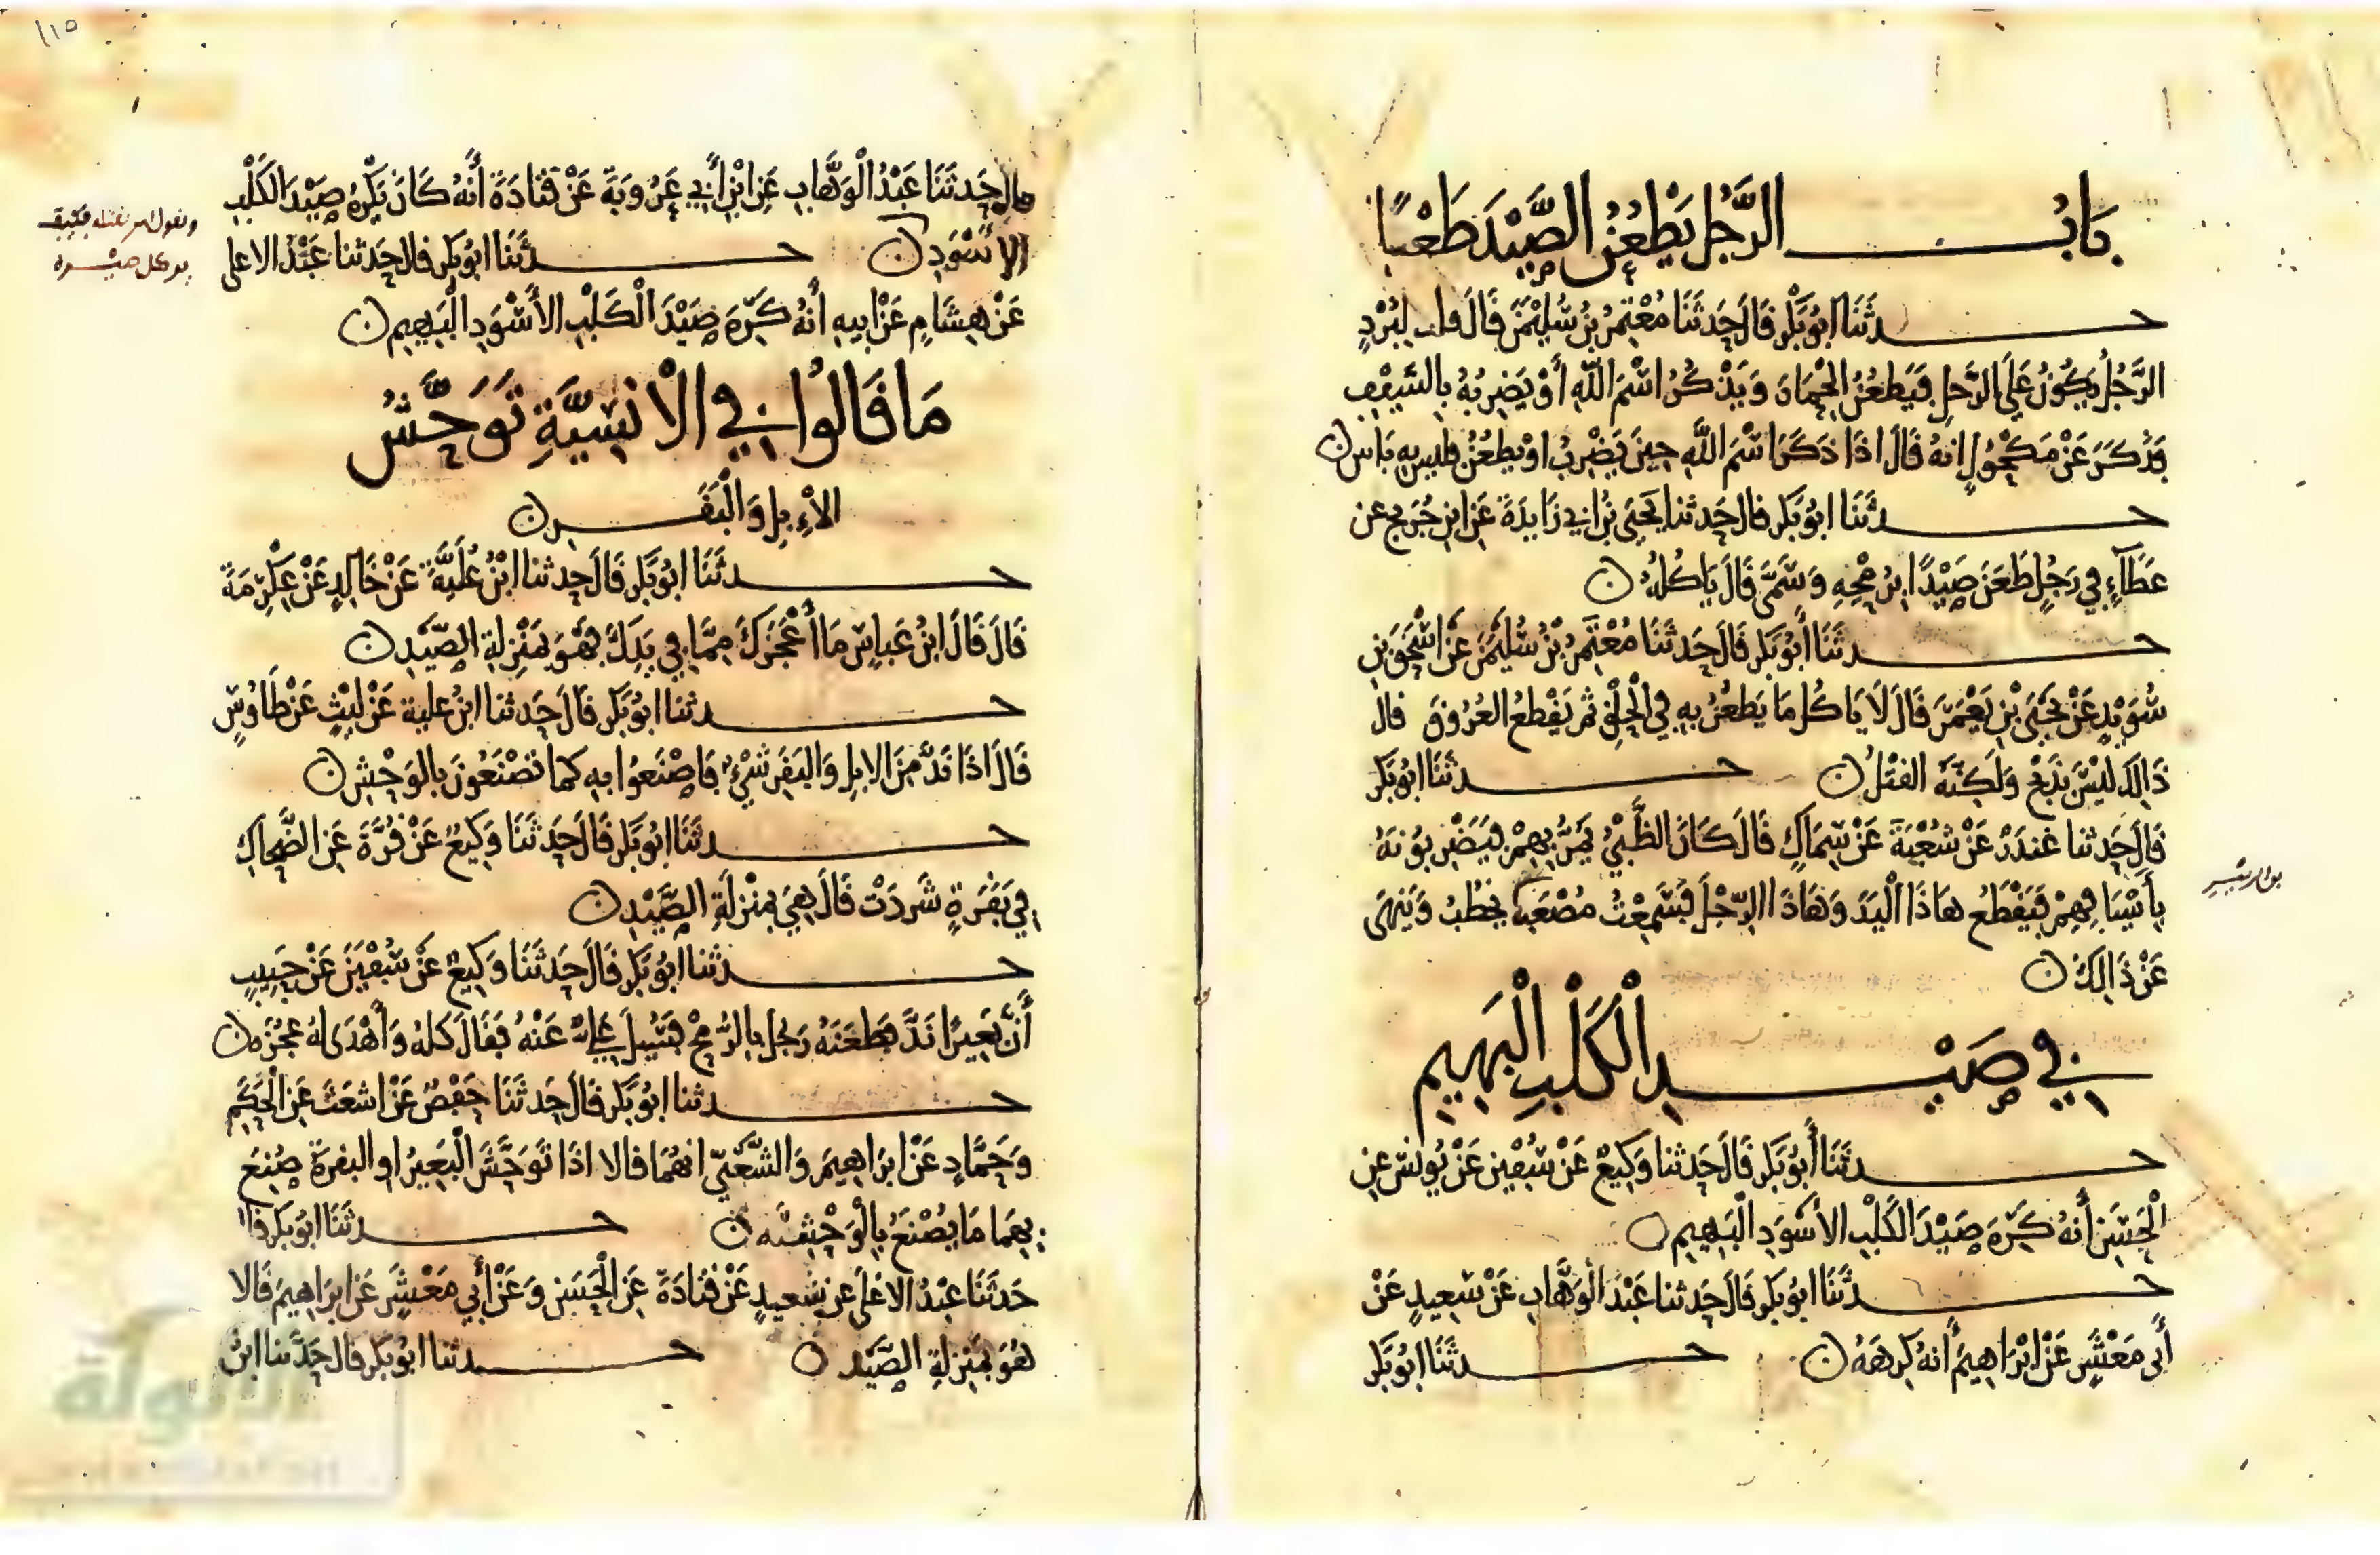 بَابُ الرَّجُل يَطْعُنُ الصَّيْدَ طَعْنًا
حدثَنَا ابُو بَكْر قَالَ حَدثَنَا مُعْتَمِرُ بنُ سُلَيْمَٰنَ قَالَ قلت لِبُرْدٍ
الرَّجُلُ يَكُونُ عَلَى الرَّحْلِ فَيَطْعُنُ الْحِمَارَ وَيَذْكُرُ اسْمَ اللَّهِ أَوْ يَضْرِبُهُ بِالسَّيْفِ
فَذَكَرَ عَنْ مَكْحُولٍ انهُ قَالَ اذَا ذَكَرَ اسْمَ اللَّهِ حِينَ يَضْرِبُ اوْ يطعُنُ فليس بِهِ بَاس
حدثَنَا ابُو بَكْر قال حَدثنا يَحْيَى بْنُ ابِي زَايِدَةَ عَنِ ابنِ جُرَيج عن
عَطَآءٍ فِي رَجُلٍ طَعَنَ صَيْدًا بِرُمْحِهِ وَسَمَّى قَالَ يَاكُلُهُ
حدثَنَا أَبُو بَكْر قَالَ حَدثَنَا مُعْتَمِرُ بْنُ سُلَيْمَٰنَ عَنْ اسْحَٰقَ بنِ
سُوَيْدٍ عَنْ يَحْيَى بْنِ يَعْمَرَ قَالَ لَا يَاكُل مَا يَطْعُنُ بِهِ فِي الْحَلْقِ ثُم يَقْطعُ العُرُوقَ قال
ذَالِكَ لَيْسَ بذَبْحٍ وَلَكِنَّهُ القتْلُ حدثَنَا ابُو بَكْر
قَال حَدثنا غُندَرٌ عَنْ شُعْبَةَ عَنْ سِمَاكٍ قَالَ كَانَ الظَّبْيُ يَمُرُّ بِهِمْ فَيَضْرِبُونَهُ
بِأَسْيَافِهِمْ فَيَقْطَعُ هَاذَا الْيَدَ وَهَاذَا الرِّجْلَ فَسَمِعْتُ مُصْعَبًا يَخْطُبُ وَيَنْهَى
عَنْ ذَالِكَ
فِي صَيْدِ الْكَلْبِ الْبَهِيمِ
حدثَنَا أَبُو بَكْر قَالَ حَدثنا وَكِيعٌ عَنْ سُفْيٰن عَنْ يُونسَ عنِ
الْحَسَنِ أَنهُ كَرِهَ صَيْدَ الكَلْبِ الأسْوَدِ الْبَهِيمِ
حدثَنَا ابُو بَكْر قَالَ حَدثنا عَبْدُ الْوَهَّاب عَنْ سَعِيدٍ عَنْ
أَبِي مَعْشَرٍ عَنْ ابْرَاهِيمَ أَنهُ كَرِهَهُ حدثَنَا ابُو بَكْر
قال حَدثَنَا عَبْدُ الْوَهَّابِ عَنِ ابْنِ أَبِي عَرُوبَةَ عَنْ قَتَادَةَ أَنَّهُ كَانَ يَكْرَهُ صَيْدَ الكَلْبِ
الأسْوَدِ حدثَنَا ابُو بَكر قال حَدثنا عَبْدُ الاعلى
عَنْ هِشَامٍ عَنْ ابيهِ أَنهُ كَرِهَ صَيْدَ الْكَلْبِ الأَسْوَدِ الْبَهِيمِ
مَا قَالُوا فِي الْانْسِيَّةِ تَوَحَّشُ
الْإِبِلِ وَالْبَقَرِ
حدثَنَا ابُو بَكْر قَالَ حَدثنا ابْنُ عُلَيَّةَ عَنْ خَالِدٍ عَنْ عِكْرِمَةَ
قَالَ قَالَ ابنُ عَبَّاسٍ مَا أَعْجَزَكَ مِمَّا فِي يَدِكَ فَهُوَ بِمَنْزِلَةِ الصَّيْدِ
حدثنا ابُو بَكْر قَالَ حَدثنا ابنُ علية عَنْ لَيْثٍ عَنْ طَاوُسٍ
قَالَ اذَا نَدَّ مِنَ الابِلِ وَالبَقَرِ شَيْءٌ فَاصْنَعُوا بِهِ كمَا تَصْنَعُونَ بالوَحْشِ
حدثَنَا ابُو بَكْر قَالَ حَدثَنَا وَكِيعٌ عَنْ قُرَّةَ عَنِ الضَّحَّاكِ
فِي بَقَرَةٍ شَرَدَتْ قَالَ هِيَ بِمَنْزِلَةِ الصَّيْدِ
حدثنا ابُو بَكْر قَالَ حَدثَنَا وَكِيعٌ عَنْ سُفْيٰنَ عَنْ حَبِيبٍ
أَنَّ بَعِيرًا نَدَّ فَطَعَنَهُ رَجُل بالرُّمْحِ فَسُيلَ عَلِيٌّ عَنْهُ فَقَالَ كُلهُ وَأَهْدَى لهُ عَجُزَهُ
حدثنا ابُو بَكْر قَالَ حَدثَنَا حَفْصٌ عَنْ اشعَثَ عَنِ الْحَكَمِ
وَحَمَّادٍ عَنْ ابرَاهِيمَ وَالشَّعْبِيِّ انهُمَا قالا اذَا تَوَحَّشَ الْبَعِيرُ او البقرةُ صُنِعَ
بِهِمَا مَا يُصْنَعُ بِالْوَحْشِيَّه حدثَنَا ابُو بَكْر قَا
حَدثَنَا عَبْدُ الاعْلَى عن سَعيدٍ عَنْ قتَادَةَ عَنِ الْحَسَنِ وَعَنْ أَبِي مَعْشَرٍ عَنْ ابرَاهِيمَ قَالَا
هُوَ بِمَنْزِلَةِ الصَّيْدِ حدثنا ابُو بَكر قال حَدَّثنا ابنُ
١١٥
الألوكة